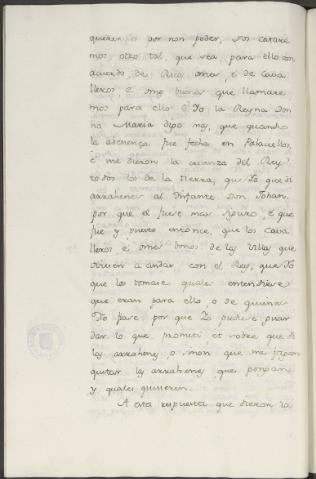 queren, o por non poder, Nos catare
mos otro tal, que sea para ello con
acuerdo, de Ricos omes, e de Cava
lleros, e omes buenos que llamare
mos para ello e Yo la Reyna Don
na Maria digo vos, que quando
la abenença fue fecha en Palacillos,
e me dieron la crianza del Rey
todos los de la tierra, que Yo que di
arrahenes al Infante Don Johan,
por que el fuese mas seguro, e que
fue y puesto entonce, que los Cava
lleros e omes bonos de las Villas que
oviesen a andar con el Rey, que Yo
que los tomase quales entendiese
que eran para ello, o de guisa
Yo fare por que Yo pudiese guar
dar lo que prometi, et sobre que di
las arrahenes, o si non que me fagan
quitar las arrahenes que pongan
y quales quisieren.
A esta respuesta que dieron la